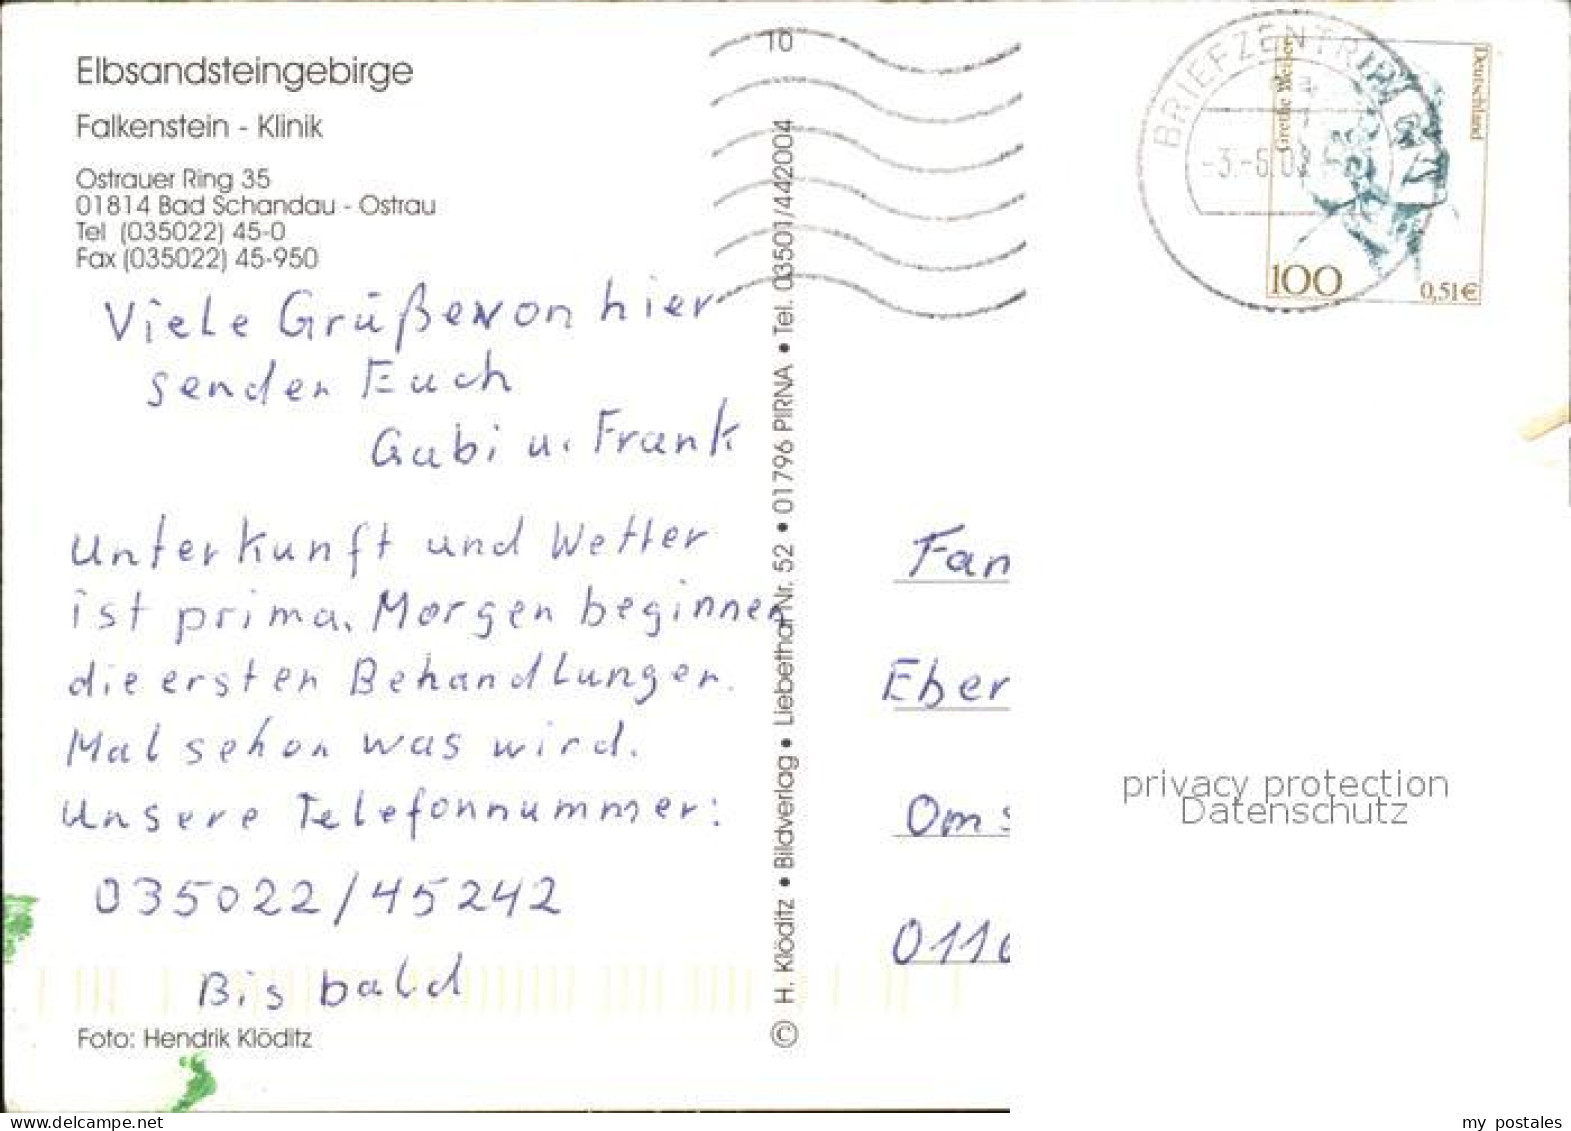 Elbsandsteingebirge
Falkenstein - Klinik
Ostrauer Ring 35
01814 Bad Schandau - Ostrau
Tel (035022) 45-0
Fax (035022) 45-950
Viele Grüße von hier
senden Euch
Gabi u. Frank
Unterkunft und Wetter
ist prima. Morgen beginnen
die ersten Behandlungen.
Mal sehon was wird.
Unsere Telefonnummer:
035022/45242
Bis bald
Foto: Hendrik Klöditz
© H. Klöditz • Bildverlag • Liebethal Nr. 52 • 01796 PIRNA • Tel. 03501/442004
10
BRIEFZENTRUM
-3.-6.0
Grethe Weiser
Deutschland
100
0,51€
Fam
Eber
Oms
011
privacy protection
Datenschutz
Delcampe.net
my_postales